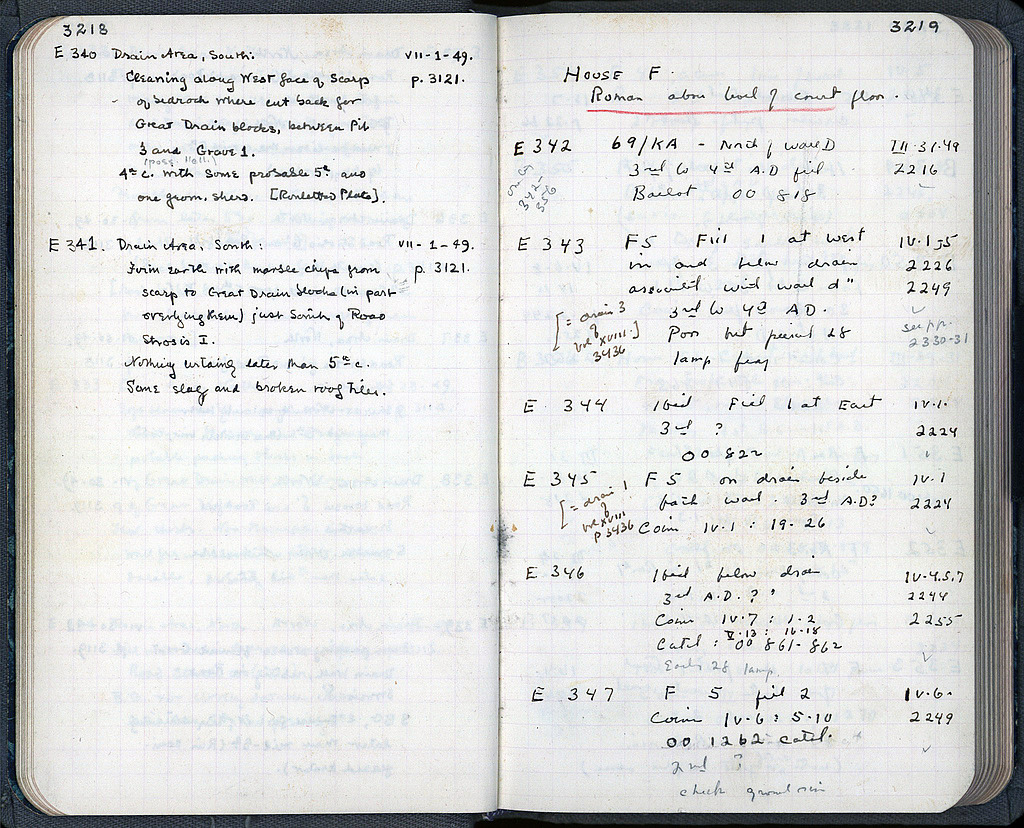 3218
E 340 Drain Area, South: VII-1-49.
Cleaning along West face of Scarp p. 3121.
of bedrock where cut back for
Great Drain blocks, between Pit
3 and Grave 1.
(poss. Hell.)
4th c. with some probable 5th and
one geom. sherd. [Rouletted Plate].
E 341. Drain Area, South: VII-1-49.
Firm earth with marble chips from p. 3121.
scarp to Great Drain blocks (in part
overlying them) just South of Road
Strosis I.
Nothing certainly later than 5th c.
Some slag and broken roof tiles.
3219
HOUSE F
Roman above level of court floor
E 342 69/KA - North of wall D III-31-49
3rd to 4th A.D fill 2216
Ballot OO 818
E 343 F5 Fill 1 at West IV.1,5
in and below drain 2226
associated with wall d" 2249
3rd to 4th A.D.
[= drain 3 of vol XVIII. 3436]
Poor but period 28 supp. 2330-31
lamp frag
E 344 Ibid Fill 1 at East IV.1.
3rd ? 2224
OO 822
E 345 F5 on drain beside IV.1
bath wall. 3rd A.D? 2224
[= drain 1 of vol XVIII p 3436
Coin IV.1 : 19-26
E 346 Ibid below drain IV-4,5,7
3rd A.D. ? " 2244
Coin IV-7 1-2 2255
V-13: 16-18
Catal: OO 861-862
Early 28 lamp.
E 347 F 5 fill 2 IV-6-
Coin IV-6: 5-10 2249
OO 1262 Catal.
2nd ?
check